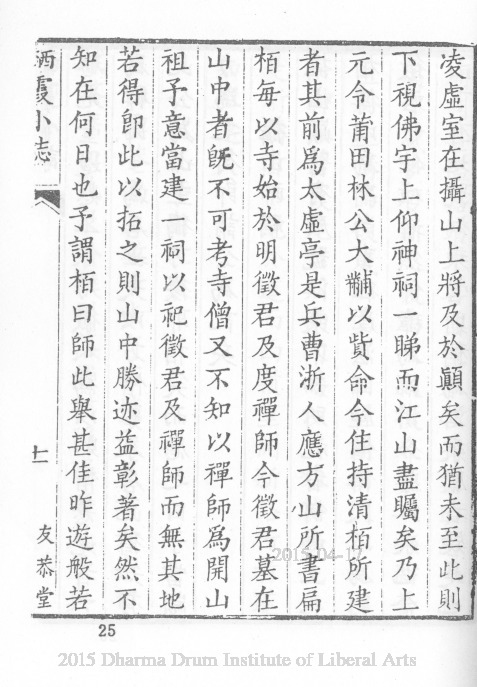 凌虛室在攝山上將及於顚矣而猶未至此則
下視佛宇上仰神祠一睇而江山盡矚矣乃上
元令莆田林公大黼以貲命今住持清栢所建
者其前爲太虛亭是兵曹浙人應方山所書扁
栢每以寺始於明徵君及度禪師今徵君墓在
山中者旣不可考寺僧又不知以禪師爲開山
祖予意當建一祠以祀徵君及禪師而無其地
若得卽此以拓之則山中勝迹益彰著矣然不
知在何日也予謂栢曰師此舉甚佳昨遊般若
栖霞小志
十一
友恭堂
25
2015-04-17
2015 Dharma Drum Institute of Liberal Arts